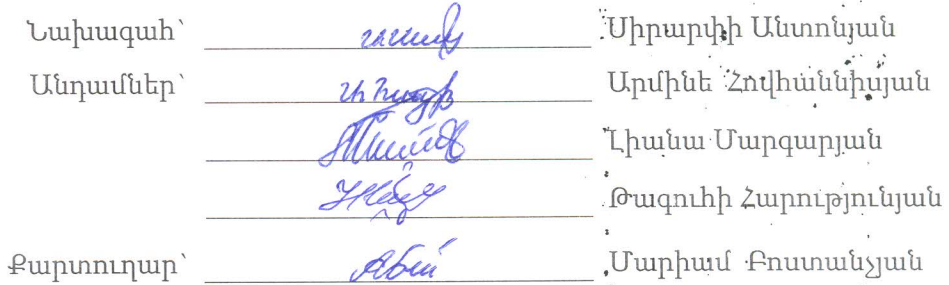 Նախագահ՝ Սիրարփի Անտոնյան
Անդամներ՝ Արմինե Հովհաննիսյան
Լիանա Մարգարյան
Թագուհի Հարությունյան
Քարտուղար՝ Մարիամ Բոստանչյան